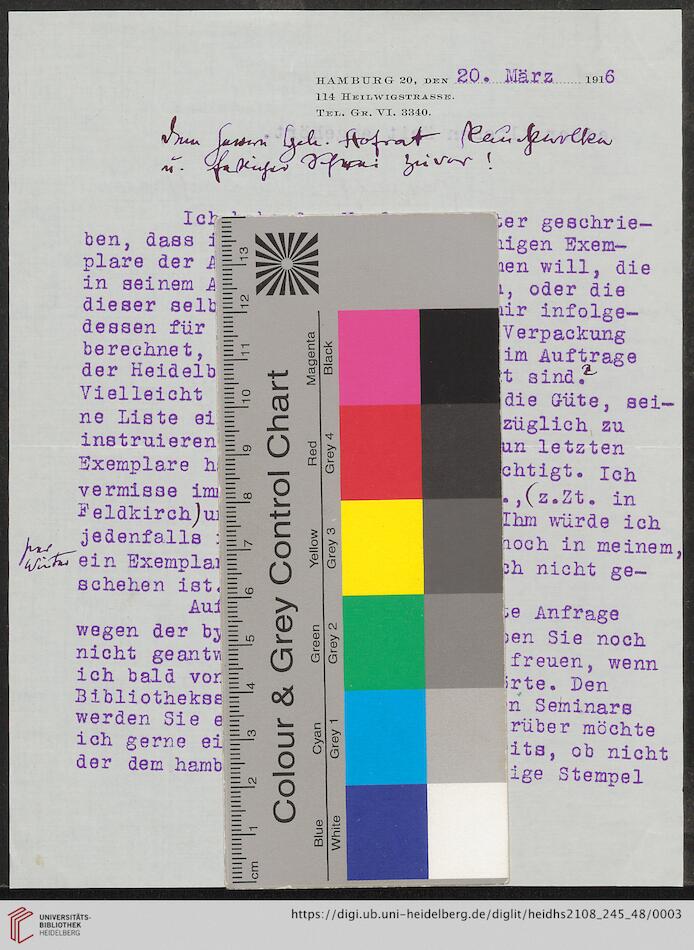 HAMBURG 20, DEN 20. März 1916
114 HEILWIGSTRASSE.
TEL. GR. VI. 3340.
Geh. Hofrat
u. zuvor!
Ich ter geschrie-
ben, dass nigen Exem-
plare der nen will, die
in seinem oder die
dieser selb nir infolge-
dessen für Verpackung
berechnet, im Auftrage
der Heidelb t sind.
Vielleicht die Güte, sei-
ne Liste ei züglich zu
instruieren un letzten
Exemplare h chtigt. Ich
vermisse im .,(z.Zt. in
Feldkirch)u Ihm würde ich
jedenfalls noch in meinem,
ein Exemplar ch nicht ge-
schehen ist.
Auf te Anfrage
wegen der by ben Sie noch
nicht geantw freuen, wenn
ich bald von örte. Den
Bibliothekss n Seminars
werden Sie e rüber möchte
ich gerne ei its, ob nicht
der dem hamb ige Stempel
Colour & Grey Control Chart
Magenta
Black
Red
Grey 4
Yellow
Grey 3
Green
Grey 2
Cyan
Grey 1
Blue
White
13
12
11
10
9
8
7
6
5
4
3
2
1
cm
UNIVERSITÄTS-
BIBLIOTHEK
HEIDELBERG
https://digi.ub.uni-heidelberg.de/diglit/heidhs2108_245_48/0003